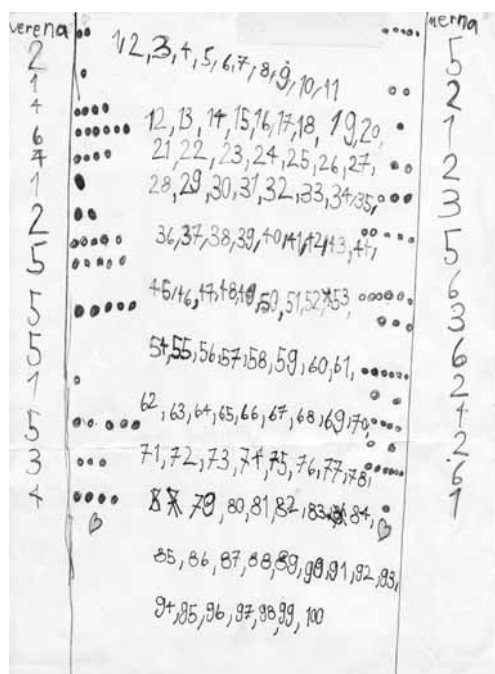 verena
2
1
4
6
4
1
2
5
5
5
1
5
3
4
1,2,3,4,5,6,7,8,9,10,11
12,13,14,15,16,17,18,19,20,
21,22,23,24,25,26,27,
28,29,30,31,32,33,34,35,
36,37,38,39,40,41,42,43,44,
45,46,47,48,49,50,51,52,53,
54,55,56,57,58,59,60,61,
62,63,64,65,66,67,68,69,70,
71,72,73,74,75,76,77,78,
79,80,81,82,83,84,
85,86,87,88,89,90,91,92,93,
94,95,96,97,98,99,100
Merna
5
2
1
2
3
5
6
3
6
2
4
2
6
1